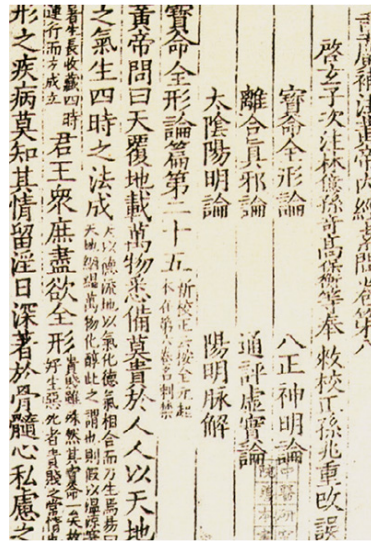 重廣補注黃帝內經素問卷第八
啓玄子次注林億孫奇高保衡等奉敕校正孫兆重改誤
寳命全形論 八正神明論
離合眞邪論 通評虛實論
太陰陽明論 陽明脉解
寳命全形論篇第二十五 新校正云按全元起本在第六卷名刺禁
黃帝問曰天覆地載萬物悉備莫貴於人人以天地
之氣生四時之法成 天以德流地以氣化德氣相合而乃生焉易曰天地絪縕萬物化醇此之謂也則假以温涼寒
暑生長收藏四時運行而方成立 君王衆庶盡欲全形 貴賤雖殊然其寳命一矣故好生惡死者貴賤之常情也
形之疾病莫知其情留淫日深著於骨髓心私慮之